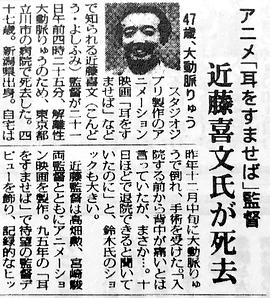 アニメ「耳をすませば」監督
近藤喜文氏が死去
47歳・大動脈りゅう
スタジオジ
ブリ製作のア
ニメーション
映画「耳をす
ませば」など
で知られる近藤喜文(こんど
う・よしふみ)監督が二十一
日午前四時二十五分、解離性
大動脈りゅうのため、東京都
立川市の病院で死去した。四
十七歳。新潟県出身。自宅は
昨年十二月中旬に大動脈りゅ
うで倒れ、手術を受けた。「入
院する前から背中が痛いとは
言っていたが、まさか…。十
日ほどで退院できると聞いて
いたのに」と、鈴木氏のショ
ックも大きい。
近藤監督は高畑勲、宮崎駿
両監督とともにアニメーショ
ン映画を製作。九五年の「耳
をすませば」で待望の監督デ
ビューを飾り、記録的なヒッ